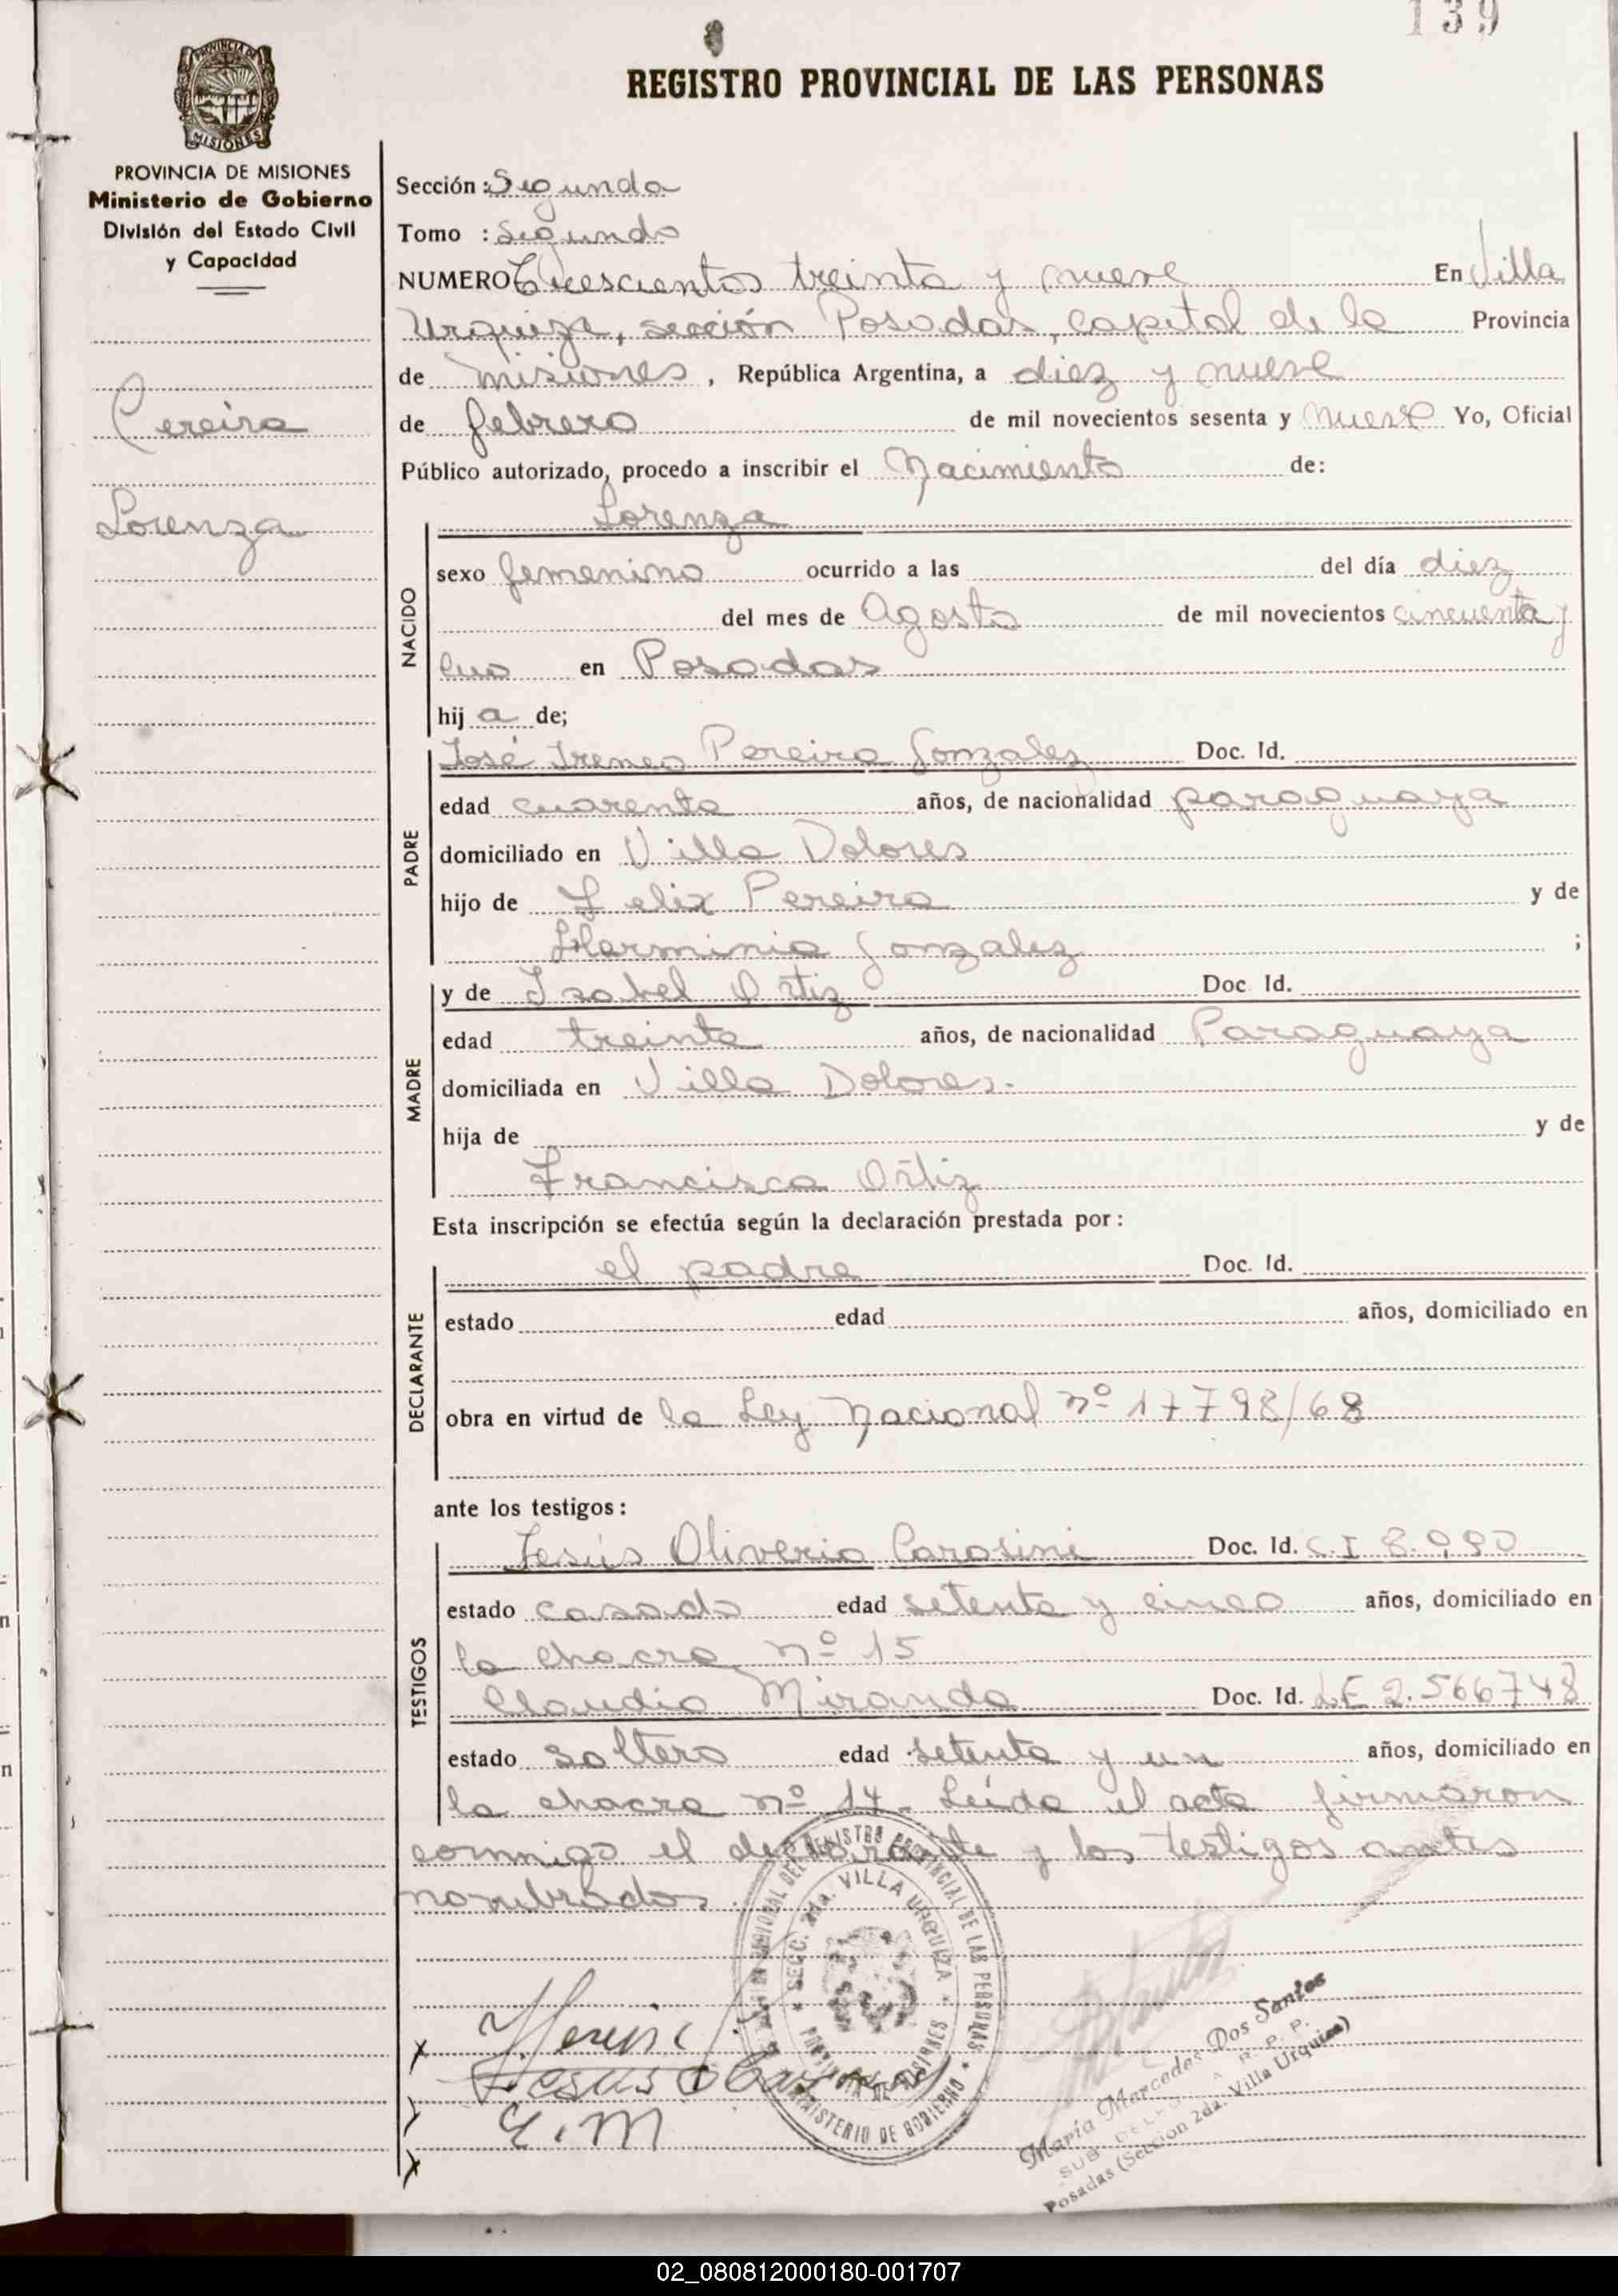 139
REGISTRO PROVINCIAL DE LAS PERSONAS
PROVINCIA DE MISIONES
MISIONES
Ministerio de Gobierno
División del Estado Civil
y Capacidad
Pereira
Lorenza
Sección: Segunda
Tomo : Segundo
NUMERO Trescientos treinta y nueve En Villa
Urquiza, sección Posadas, capital de la Provincia
de Misiones, República Argentina, a diez y nueve
de febrero de mil novecientos sesenta y nueve Yo, Oficial
Público autorizado, procedo a inscribir el Nacimiento de:
NACIDO
Lorenza
sexo femenino ocurrido a las del día diez
del mes de Agosto de mil novecientos cincuenta y
en Posadas
hij a de;
PADRE
José Ireneo Pereira Gonzalez Doc. Id.
edad cuarenta años, de nacionalidad paraguaya
domiciliado en Villa Dolores
hijo de Felix Pereira y de
Herminia Gonzalez ;
MADRE
y de Isabel Ortiz Doc. Id.
edad treinta años, de nacionalidad Paraguaya
domiciliada en Villa Dolores.
hija de y de
Francisca Ortiz
Esta inscripción se efectúa según la declaración prestada por:
DECLARANTE
el padre Doc. Id.
estado edad años, domiciliado en
obra en virtud de la Ley Nacional nº 17798/68
ante los testigos:
TESTIGOS
Jesús Oliverio Parasini Doc. Id. C.I 8.990
estado casado edad setenta y cinco años, domiciliado en
la chacra nº 15
Claudio Miranda Doc. Id. LE 2.566748
estado soltero edad setenta y un años, domiciliado en
la chacra nº 14. Leída el acta firmaron
conmigo el declarante y los testigos antes
nombrados.
REGISTRO PROVINCIAL DE LAS PERSONAS
SECC. 2da. VILLA URQUIZA
MISIONES
MINISTERIO DE GOBIERNO
Jesus O
C. M
María Mercedes Dos Santos
R. P. P.
Posadas (Sección 2da. Villa Urquiza)
02_080812000180-001707